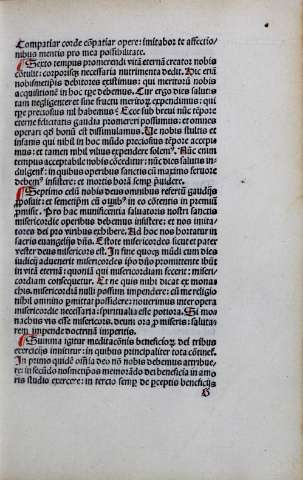 Compatiar corde cōpatiar opere: imitabor te affectio⸗
nibus mentis pro mea possibilitate.
Sexto tempus promerendi vitā eternā creator nobis
cōtulit: corporisqꝫ necessaria nutrimenta dedit. Hoc etiā
nobismetipsis debitores existimus: qui meritorū nobis
acquisitionē in hoc tꝑe debemus. Cur ergo dies salutis
tam negligenter et sine fructu meritorū expendimus: qui
tꝑe preciosius nil habemus? Ecce sub breui nūc tēpore
eterne felicitatis gaudia promereri possumus: et omnes
operari qd bonū est dissimulamus. Ne nobis stultis et
insanis qui nihil in hoc mūdo preciosius tēpore accepi⸗
mus: et tamen nihil vilius expendere solemꝰ. Nūc enim
tempus acceptabile nobis cōceditur: nūc dies salutis in⸗
dulgeť: in quibus operibus sanctis cū maximo feruore
debemꝰ insistere: et mortis horā semꝑ p̄uidere.
Septimo celū nobis deus omnibus refertū gaudijs
p̄posuit: et semetip̄m cū oībꝰ in eo cōtentis in premiū
p̄misit. Pro hac munificentia saluatoris nostri sanctis
misericordie operibus debemus insistere: et nos imita⸗
tores dei pro viribus exhibere. Ad hoc nos hortatur in
sacris euangelijs dn̄s. Estote misericordes sicut et pater
vester deus misericors est. In fine quoqꝫ mūdi cum dies
iudicij aduenerit misericordes ip̄o dn̄o promittente ibūt
in vitā eternā: quoniā qui misericordiam fecerit: miseri⸗
cordiam consequetur. Et ne quis mihi dicat ex monas
chis. misericordiā nulli possum impendere: cū me religio
nihil omnino ꝑmittat possidere: nouerimus inter opera
misericordie necessaria: spiritualia esse potiora. Si mo
nachus vis esse misericors. deum ora ꝓ miseris: saluta⸗
rem impende doctrinā imperitis.
Summa igitur meditacōnis beneficiorꝫ dei tribus
exercicijs innititur: in quibus principaliter tota cōsistet.
In primo quidē officia deo nr̄o nobis debemus attribue⸗
re: in secūdo nosmetipos memorādo dei beneficia in amo
ris studio exercere: in tercio semꝑ de p̄ceptis beneficijs